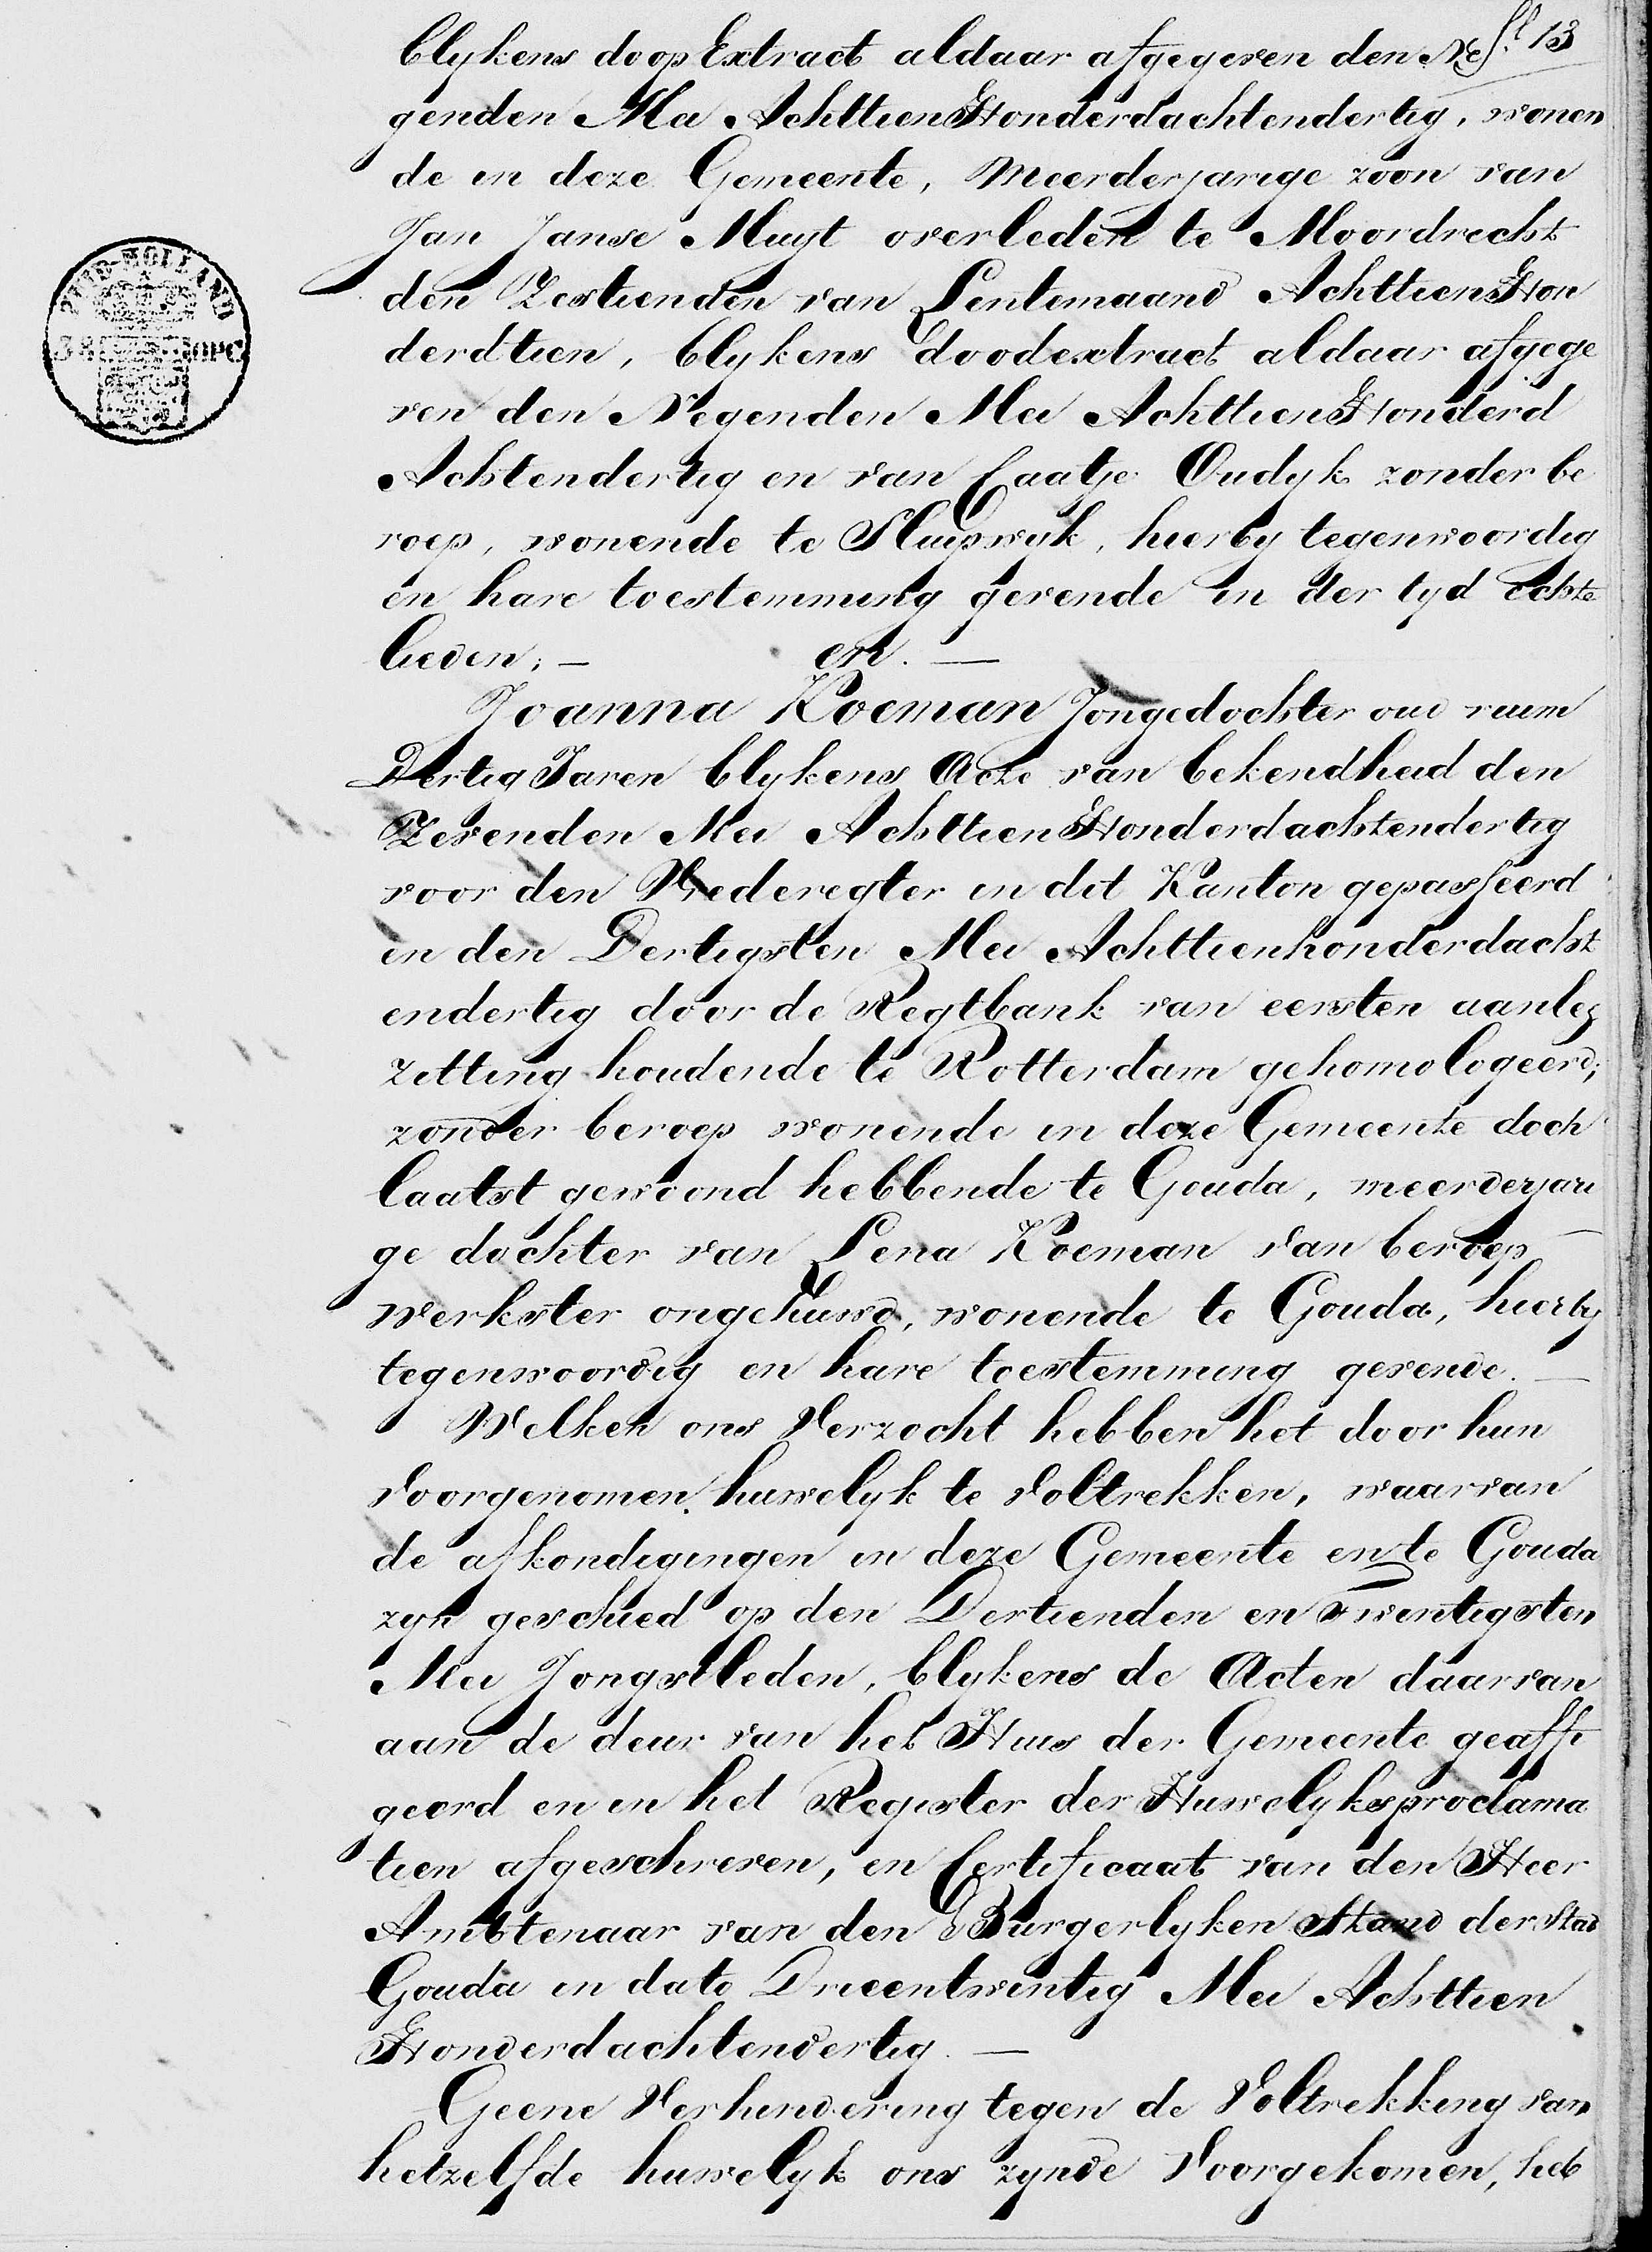 fl 13
blykens doop Extract aldaar afgegeven den Ne
genden Mei AchttienHonderdachtendertig, wonen
de in deze Gemeente, Meerderjarige zoon van
Jan Janse Muijt overleden te Moordrecht
den Zestienden van Lentemaand AchttienHon
derdtien, blykens doodextract aldaar afgege
ven den Negenden Mei AchttienHonderd
Achtendertig en van Caatje Oudyk zonder be
roep, wonende te Sluipwyk, hierby tegenwoordig
en hare toestemming gevende in der tyd echte
lieden; — en. —
Joanna Koeman Jongedochter oud ruim
Dertig Jaren blykens Acte van bekendheid den
Zevenden Mei AchttienHonderdachtendertig
voor den Vrederegter in dit Kanton gepasseerd
en den Dertigsten Mei Achttienhonderdacht
endertig door de Regtbank van eersten aanleg
zitting houdende te Rotterdam gehomologeerd;
zonder beroep wonende in deze Gemeente doch
laatst gewoond hebbende te Gouda, meerderjari
ge dochter van Lena Koeman van beroep
werkster ongehuwd, wonende te Gouda, hierby
tegenwoordig en hare toestemming gevende. —
Welken ons Verzocht hebben het door hun
Voorgenomen huwelyk te Voltrekken, waarvan
de afkondigingen in deze Gemeente en te Gouda
zyn geschied op den Dertienden en Twintigsten
Mei Jongstleden, blykens de Acten daarvan
aan de deur van het Huis der Gemeente geaffi
geerd en in het Register der Huwelyksproclama
tien afgeschreven, en Certificaat van den Heer
Ambtenaar van den Burgerlyken Stand der Stad
Gouda in dato Drieentwintig Mei Achttien
Honderdachtendertig. —
Geene Verhindering tegen de Voltrekking van
hetzelfde huwelyk ons zynde Voorgekomen, heb
ZUID-HOLLAND